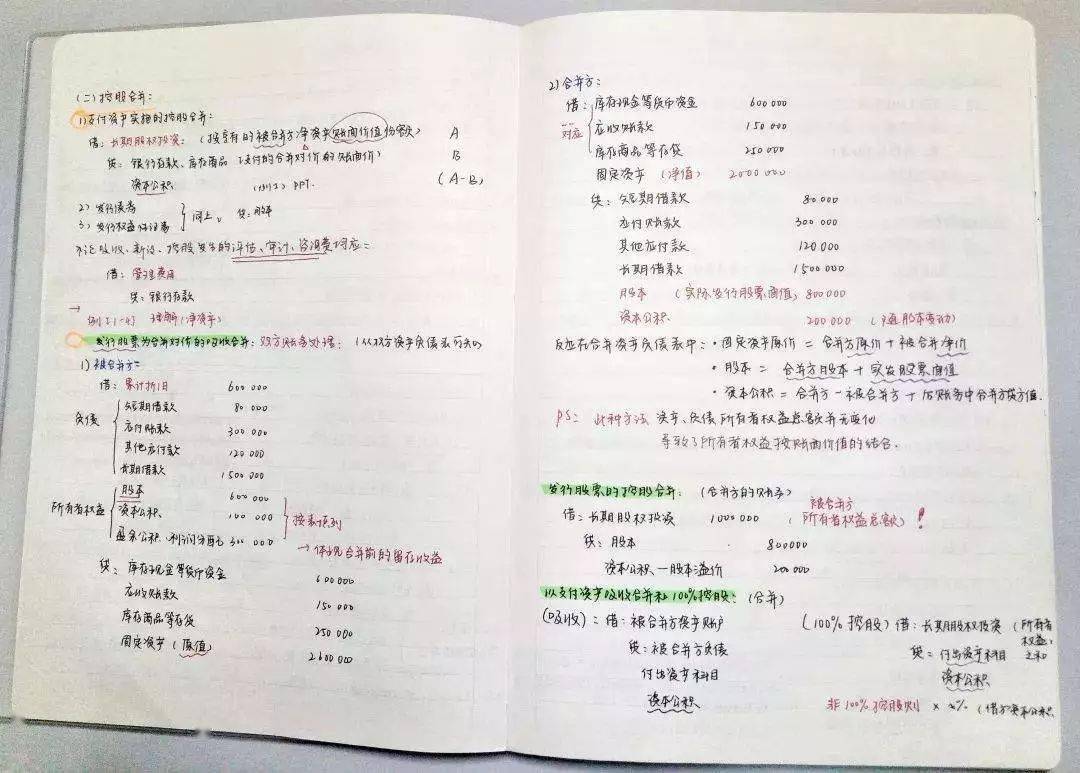 (二) 控股合并：
1) 支付资产实施的控股合并：
借：长期股权投资：(按享有的被合并方净资产账面价值份额) A
贷：银行存款、库存商品 (支付的合并对价的账面价) B
资本公积 (例12) PPT. (A-B)
2) 发行债券
3) 发行权益性证券 } 同上，贷：股本
不论吸收、新设、控股发生的评估、审计、咨询费均应：
借：管理费用
贷：银行存款
→ 例[1-4] 理解(净资产)
发行股票为合并对价的吸收合并：双方账务处理：(从双方资产负债表可知)
1) 被合并方：
借：累计折旧 600 000
负债 { 短期借款 80 000
应付账款 300 000
其他应付款 120 000
长期借款 1 500 000
所有者权益 { 股本 600 000
资本公积 100 000 } 按表填列
盈余公积、利润分配 300 000
→ 体现合并前的留存收益
贷：库存现金等货币资金 600 000
应收账款 150 000
库存商品等存货 250 000
固定资产 (原值) 2600 000
2) 合并方：
借：库存现金等货币资金 600 000
对应 应收账款 150 000
库存商品等存货 250 000
固定资产 (净值) 2000 000
贷：短期借款 80 000
应付账款 300 000
其他应付款 120 000
长期借款 1500 000
股本 (实际发行股票面值) 800 000
资本公积 200 000 (随股本变动)
反应在合并资产负债表中：· 固定资产原价 = 合并方原价 + 被合并净价
· 股本 = 合并方股本 + 实发股票面值
· 资本公积 = 合并方 - 被合并方 + 后账务中合并方贷方值.
PS：此种方法 资产、负债 所有者权益总额并无变化
导致了所有者权益按账面价值的结合.
发行股票的控股合并：(合并方的账务)
借：长期股权投资 1000 000 (被合并方所有者权益总额) !
贷：股本 800000
资本公积—股本溢价 200 000
以支付资产吸收合并和100%控股：(合并)
(吸收)：借：被合并方资产账户
贷：被合并方负债
付出资产科目
资本公积
(100%控股) 借：长期股权投资 (所有者权益之和)
贷：付出资产科目
资本公积
非100%控股则 × x% (借方资本公积